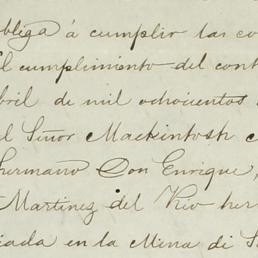 bliga á cumplir las co
l cumplimiento del cont
bril de mil ochocientos
el Señor Mackintosh c
hermano Don Enrique,
Martinez del Rio her
iada en la Mina di S